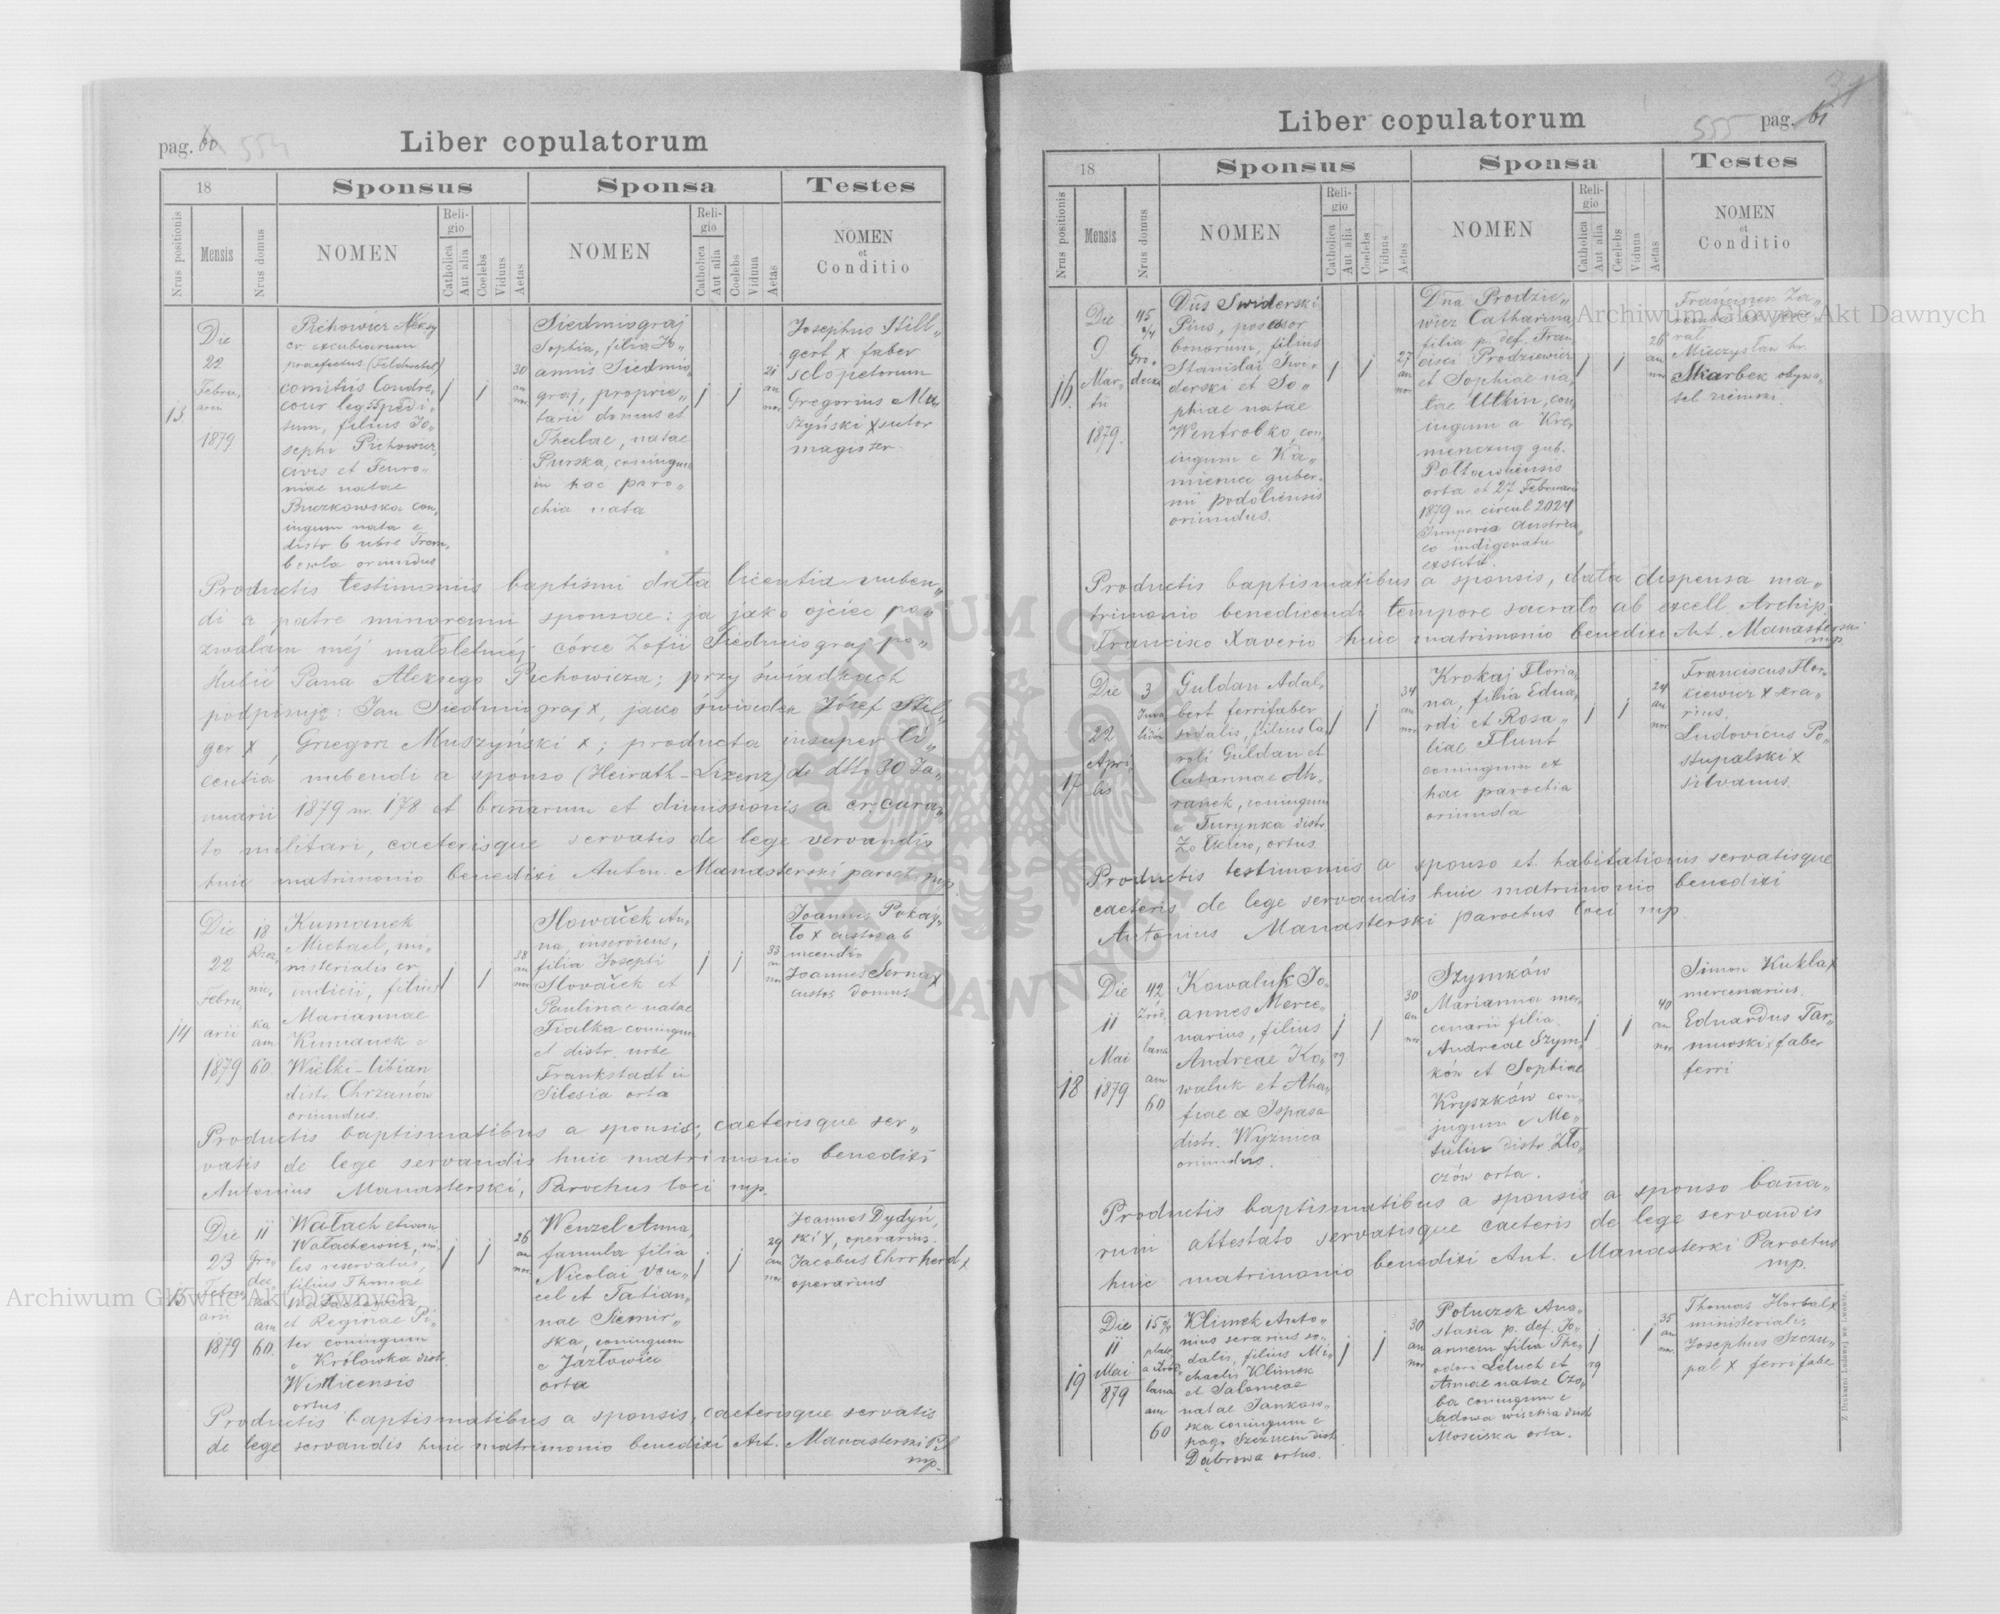 pag. 60 554
Liber copulatorum
18
Sponsus
Sponsa
Testes
Nrus positionis
Mensis
Nrus domus
NOMEN
Religio
Catholica
Aut alia
Coelebs
Viduus
Aetas
NOMEN
Religio
Catholica
Aut alia
Coelebs
Vidua
Aetas
NOMEN
et
Conditio
13
Die
22
Febru„
arii
1879
Pichowicz Aleksy
cr. excubiarum
praefectus (Feldwebel)
comitis Condre„
cour leg. Spedi„
tum, filius Jo„
sephi Pichowicz,
civis et Feuro„
niae natae
Buczkowska con„
iugum nata e
distr. & urbe Trem„
bowla oriundus
1
1
30
an
nor.
Siedmiograj
Sophia, filia Jo„
annis Siedmio„
graj, proprie„
tarii domus et
Theclae, natae
Purska, coniugum
in hac paro„
chia nata
1
1
21
an
nor
Josephus Still„
gert x faber
sclopetorum
Gregorius Mu„
szyński x sutor
magister.
Productis testimoniis baptismi data licentia nuben„
di a patre minorenni sponsae: ja jako ojciec po„
zwalam méj małoletniéj córce Zofii Siedmiograj po„
ślubić Pana Aleksego Pichowicza; przy świadkach
podpisuję: Jan Siedmiograj x, jako świadek Józef Stil„
ger x, Gregorz Muszyński x; producta insuper li„
centia nubendi a sponso (Heirath-Lizenz) de dtto 30 Ja„
nuarii 1879 nr. 178 et bannarum et dimissionis a cr. cura„
to militari, caeterisque servatis de lege servandis
huic matrimonio benedixi Anton. Manasterski paroch. mp.
14
Die
22
Febru„
arii
1879
18
Rzez„
nic„
ka
am
60.
Kumanek
Michael, mi„
nisterialis cr.
iudicii, filius
Mariannae
Kumanek e
Wielki-libian
distr. Chrzanów
oriundus.
1
1
38
an
nor
Slowaček An„
na, inserviens,
filia Josephi
Slovaček et
Paulinae natae
Fialka coniugum
et distr. urbe
Frankstadt in
Silesia orta
1
1
33
an
nor
Joannes Pokaj„
to x custos ab
incendio
Joannes Serna x
custos domus
Productis baptismatibus a sponsis, caeterisque ser„
vatis de lege servandis huic matrimonio benedixi
Antonius Manasterski, Parochus loci mp.
15
Die
23
Febru„
arii
1879
11
Gro„
dec„
ka
am
60.
Wałach etiam
Wałachewicz, mi„
les reservatus,
filius Thomae
Wałachewicz
et Reginae Pi„
ter coniugum
e Królowka distr.
Wisnicensis
ortus
1
1
26
an
nor.
Wenzel Anna,
famula filia
Nicolai Ven„
cel et Tatian„
nae Siemir„
ska, coniugum
e Jazłowiec
orta
1
1
29
an
nor
Joannes Dydyń„
ski x, operarius.
Jacobus Ehrrherd x
operarius
Productis baptismatibus a sponsis, caeterisque servatis
de lege servandis huic matrimonio benedixi Ant. Manasterski
mp.
Liber copulatorum
555 pag. 61
31
18
Sponsus
Sponsa
Testes
Nrus positionis
Mensis
Nrus domus
NOMEN
Religio
Catholica
Aut alia
Coelebs
Viduus
Aetas
NOMEN
Religio
Catholica
Aut alia
Coelebs
Vidua
Aetas
NOMEN
et
Conditio
16.
Die
9
Mar„
tii
1879.
45
2/4
Gro„
decka
Dñs Swiderski
Pius, possessor
bonorum, filius
Stanislai Swi„
derski et So„
phiae natae
Wentrobko, con„
iugum e Ka„
mieniec guber„
nii podoliensis
oriundus.
1
1
27
an
nor
Dña Prodzie„
wicz Catharina,
filia p. def. Fran„
cisci Prodziewicz
et Sophiae na„
tae Utkin, con„
iugum a Kre„
menczug gub.
Pottawiensis
orta et 27 Februarii
1879 nr. circul 2024
Imperia Austria„
co indigenata
exstitit.
1
1
26
an
nor
Franciszek Za„
remba
Mieczysław hr.
Skarbek obywa„
tel ziemski.
Productis baptismatibus a sponsis, data dispensa ma„
trimonio benedicendi tempore sacrato ab excell. Archip.
Francisco Xaverio huic matrimonio benedixi Ant. Manasterski
mp
17
Die
22
Apri„
lis
3
Inva„
lidów
Guldan Adal„
bert ferrifaber
sodalis, filius Ca„
roli Guldan et
Catarinae Ah„
ranek, coniugum
e Turynka distr.
Zołkiew, ortus.
1
1
34
an
nor
Krokaj Floria„
na, filia Edua„
rdi et Rosa„
liae Flunt
coniugum ex
hac parochia
oriunda
1
1
24
an
nor
Franciscus Flor„
kiewicz x
rius.
Ludovicus Po„
stupalski x
silvanus.
Productis testimoniis a sponso et habitationis servatisque
caeteris de lege servandis huic matrimonio benedixi
Antonius Manasterski parochus loci mp.
18
Die
11
Mai
1879
42
Zród„
lana
am
60
Kowaluk Jo„
annes Merce„
narius, filius
Andreae Ko„
waluk et Aha„
fiae ex Ispasa
distr. Wyznica
oriundus.
1
rg
1
30
an
nor
Szymków
Marianna mer„
cenarii filia
Andreae Szym„
ków et Sophiae
Kryszków con„
jugum e Me„
tulin distr. Zło„
czów orta.
1
1
40
an
nor
Simon Kukla x
mercenarius.
Eduardus Tar„
nawski x faber
ferri
Productis baptismatibus a sponsis a sponso banna„
rum attestato servatisque caeteris de lege servandis
huic matrimonio benedixi Ant. Manasterki Parochus
mp.
19
Die
11
Mai
879
15 2/4
plac
a Zród„
lana
am
60
Klimek Anto„
nius serarius so„
dalis, filius Mi„
chaelis Klimek
et Salomeae
natae Jankow„
ska coniugum e
pago Szczucin distr.
Dąbrowa ortus.
1
1
30
an
nor
Potuczek Ana„
stasia p. def. Jo„
annem filia The„
odori Leluch et
Annae natae Czo„
ba coniugum e
Sadowa wisznia distr.
Mosciska orta.
1
rg
1
35
an
nor.
Thomas Horbal x
ministerialis
Josephus Szczu„
pal x ferrifabe
Z Drukarni Ludowej we Lwowie.
Archiwum Główne Akt Dawnych
Archiwum Główne Akt Dawnych
ARCHIWUM GŁÓWNE AKT DAWNYCH